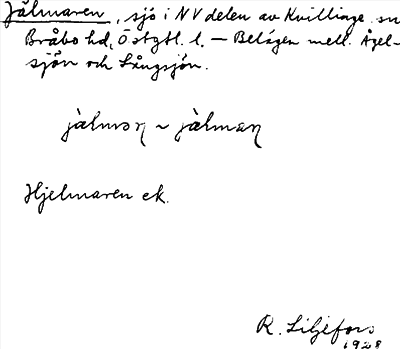 Jälmaren, sjö i NV delen av Kvillinge sn
Bråbo hd, Östgtl. l. — Belägen mell. Ågel-
sjön och Långsjön.
jälmarn ~ jälman
Hjelmaren ek.
R. Liljefors
1928